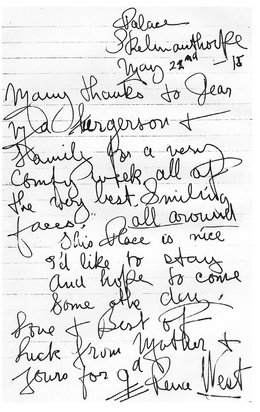 Palace
Skelmanthorpe
May 22nd - 15
Many thanks to Dear
Ma Hergerson +
Family for a very
Comfy week all of
the very best. Smiling
faces. all around
This Place is nice
I'd like to stay
and hope to come
Some other day.
Love + Best of
Luck from Mother +
yours for
Rene West